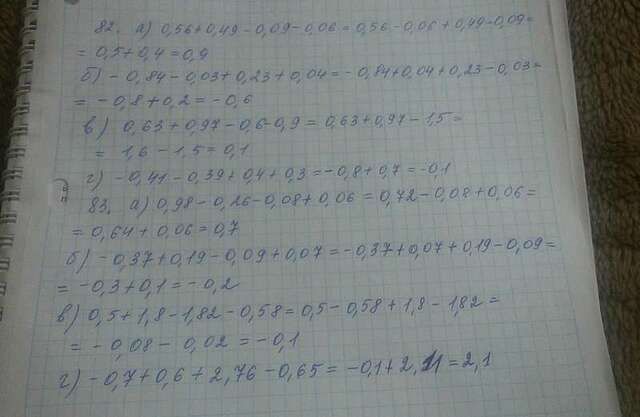 82. а) 0,56+0,49-0,09-0,06=0,56-0,06+0,49-0,09=
=0,5+0,4=0,9
б) -0,84-0,03+0,23+0,04=-0,84+0,04+0,23-0,03=
= -0,8+0,2=-0,6
в) 0,63+0,97-0,6-0,9=0,63+0,97-1,5=
= 1,6-1,5=0,1
г) -0,41-0,39+0,4+0,3=-0,8+0,7=-0,1
83. а) 0,98-0,26-0,08+0,06=0,72-0,08+0,06=
=0,64+0,06=0,7
б) -0,37+0,19-0,09+0,07=-0,37+0,07+0,19-0,09=
= -0,3+0,1=-0,2
в) 0,5+1,8-1,82-0,58=0,5-0,58+1,8-1,82=
= -0,08-0,02=-0,1
г) -0,7+0,6+2,76-0,65=-0,1+2,11=2,1